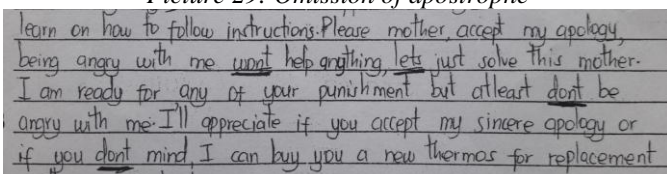 Picture 29: Omission of apostrophe
learn on how to follow instructions.Please mother, accept my apology,
being angry with me wont help anything, lets just solve this mother.
I am ready for any of your punishment but atleast dont be
angry with me. I'll appreciate if you accept my sincere apology or
if you dont mind, I can buy you a new thermos for replacement